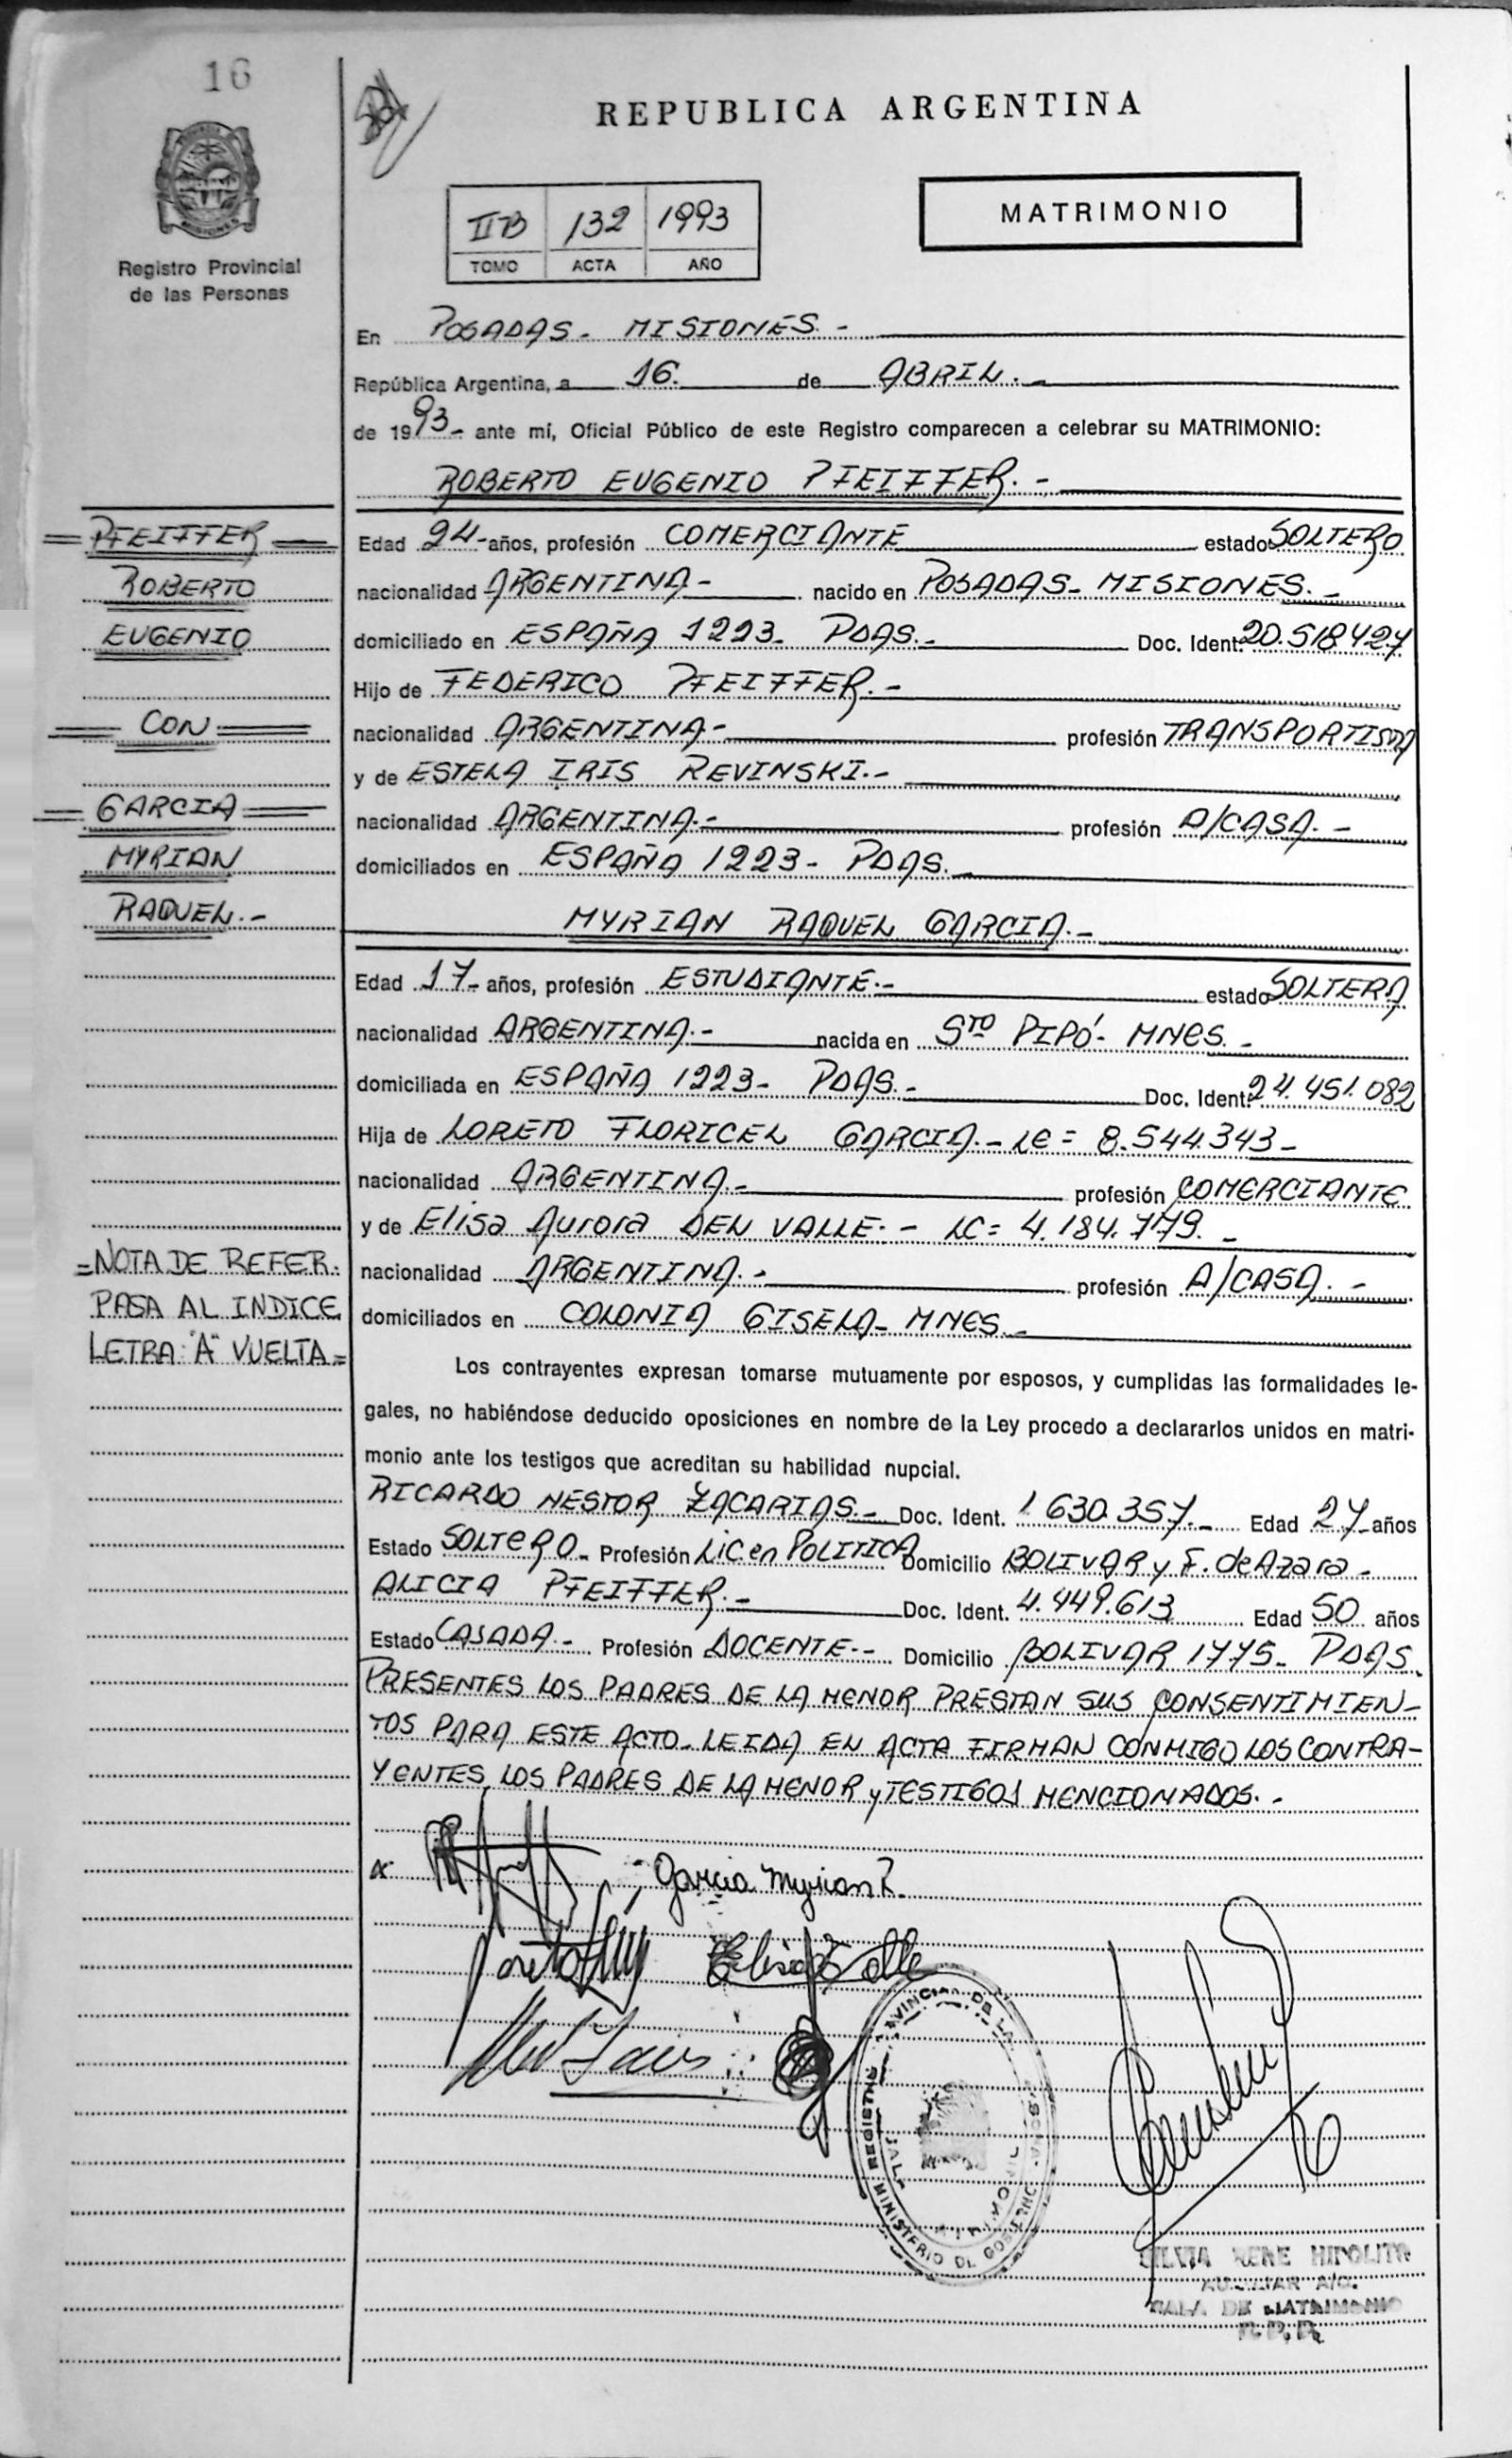 16
REPUBLICA ARGENTINA
Registro Provincial
de las Personas
IIB 132 1993
TOMO ACTA AÑO
MATRIMONIO
En POSADAS - MISIONES. -
República Argentina, a 16. de ABRIL. -
de 1993- ante mí, Oficial Público de este Registro comparecen a celebrar su MATRIMONIO:
ROBERTO EUGENIO PFEIFFER. -
=PFEIFFER=
ROBERTO
EUGENIO
=CON=
=GARCIA=
MYRIAN
RAQUEL. -
Edad 24- años, profesión COMERCIANTE estado SOLTERO
nacionalidad ARGENTINA- nacido en POSADAS- MISIONES. -
domiciliado en ESPAÑA 1223- PDAS.- Doc. Ident. 20.518427
Hijo de FEDERICO PFEIFFER. -
nacionalidad ARGENTINA- profesión TRANSPORTISTA
y de ESTELA IRIS REVINSKI. -
nacionalidad ARGENTINA.- profesión A/CASA. -
domiciliados en ESPAÑA 1223- PDAS.
MYRIAN RAQUEL GARCIA. -
Edad 17- años, profesión ESTUDIANTE.- estado SOLTERA
nacionalidad ARGENTINA.- nacida en STO PIPÓ- MNES. -
domiciliada en ESPAÑA 1223- PDAS.- Doc. Ident. 24.451.082
Hija de LORETO FLORICEL GARCIA.- LE= 8.544.343-
nacionalidad ARGENTINA.- profesión COMERCIANTE
y de Elisa Aurora DEL VALLE.- LC= 4.184.779. -
nacionalidad ARGENTINA.- profesión A/CASA. -
domiciliados en COLONIA GISELA- MNES. -
=NOTA DE REFER.
PASA AL INDICE
LETRA "A" VUELTA=
Los contrayentes expresan tomarse mutuamente por esposos, y cumplidas las formalidades le-
gales, no habiéndose deducido oposiciones en nombre de la Ley procedo a declararlos unidos en matri-
monio ante los testigos que acreditan su habilidad nupcial.
RICARDO NESTOR ZACARIAS.- Doc. Ident. 1630.357.- Edad 27- años
Estado SOLTERO- Profesión Lic en POLITICA Domicilio BOLIVAR y F. de Azara -
ALICIA PFEIFFER.- Doc. Ident. 4.449.613 Edad 50 años
Estado CASADA.- Profesión DOCENTE.- Domicilio BOLIVAR 1775- PDAS.
PRESENTES LOS PADRES DE LA MENOR PRESTAN SUS CONSENTIMIEN-
TOS PARA ESTE ACTO- LEIDA EN ACTA FIRMAN CONMIGO LOS CONTRA-
YENTES, LOS PADRES DE LA MENOR y TESTIGOS MENCIONADOS. -
Garcia Myrian R.
MINISTERIO DE GOBIERNO
SILVIA RENE HIPOLITO
AUXILIAR A/C.
SALA DE MATRIMONIO
R.P.P.